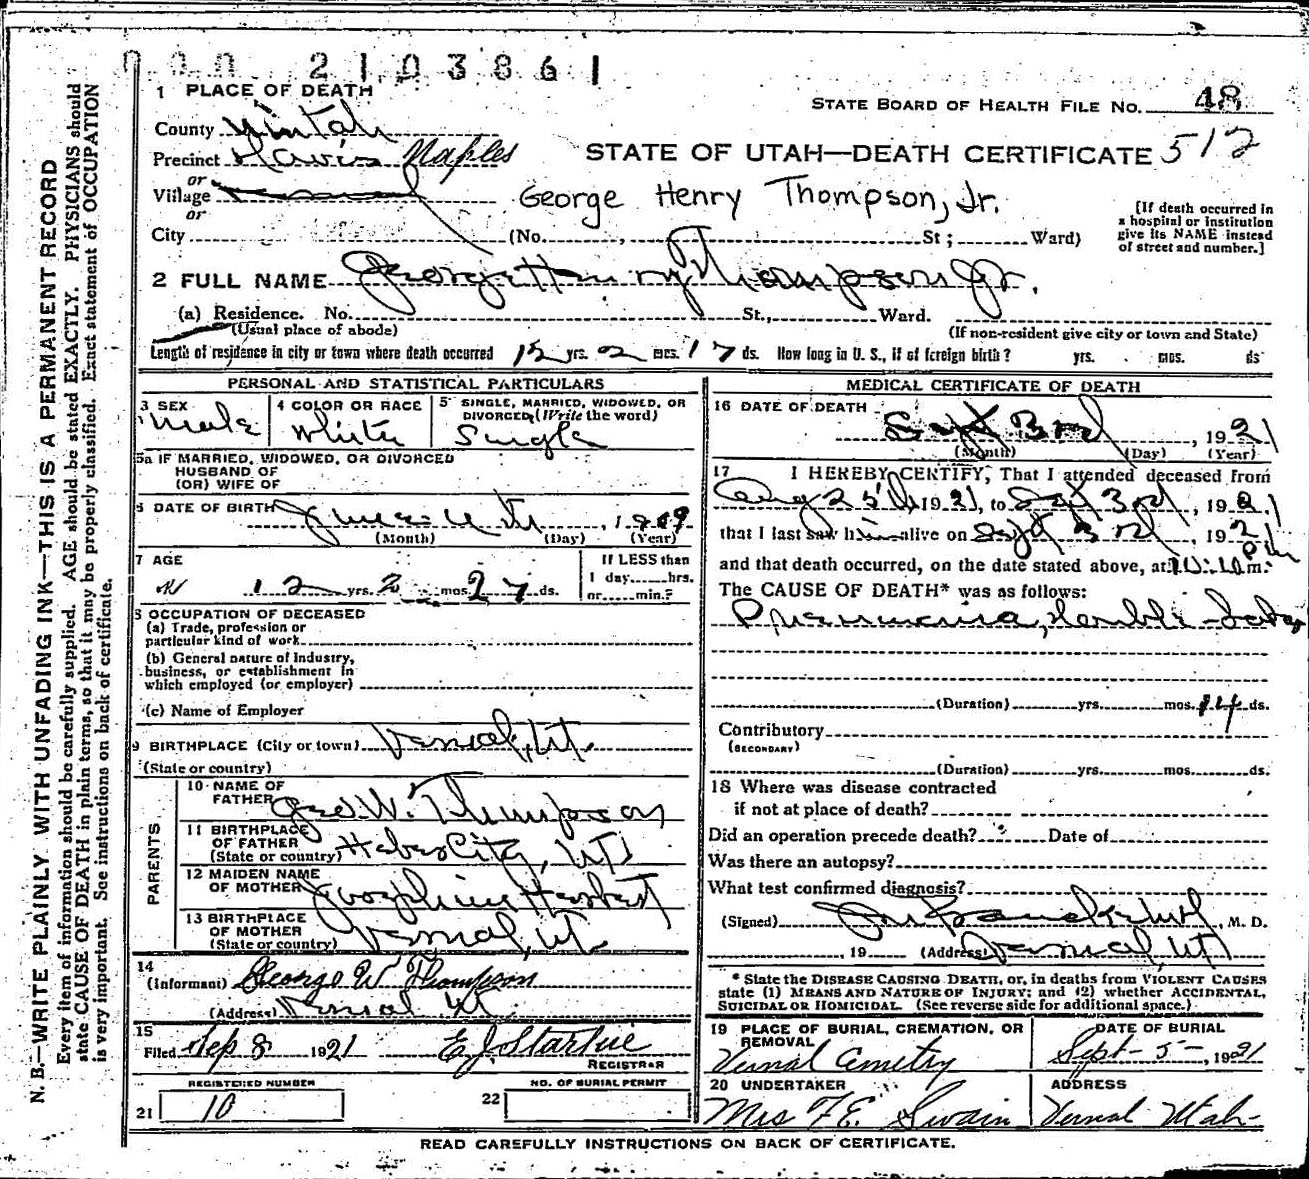 N. B.—WRITE PLAINLY WITH UNFADING INK—THIS IS A PERMANENT RECORD
Every item of information should be carefully supplied. AGE should be stated EXACTLY. PHYSICIANS should
state CAUSE OF DEATH in plain terms, so that it may be properly classified. Exact statement of OCCUPATION
is very important. See instructions on back of certificate.
2103861
1 PLACE OF DEATH
STATE BOARD OF HEALTH FILE No. 48
County Uintah
Precinct Naples
STATE OF UTAH—DEATH CERTIFICATE 512
or
Village
George Henry Thompson, Jr.
or
City (No. , St ; Ward)
[If death occurred in
a hospital or institution
give its NAME instead
of street and number.]
2 FULL NAME George Henry Thompson Jr.
(a) Residence. No. St., Ward.
(Usual place of abode)
(If non-resident give city or town and State)
Length of residence in city or town where death occurred 12 yrs. 2 mos. 17 ds. How long in U. S., if of foreign birth? yrs. mos. ds
PERSONAL AND STATISTICAL PARTICULARS
3 SEX
Male
4 COLOR OR RACE
White
5 SINGLE, MARRIED, WIDOWED, OR
DIVORCED, (Write the word)
Single
5a IF MARRIED, WIDOWED, OR DIVORCED
HUSBAND OF
(OR) WIFE OF
6 DATE OF BIRTH June , 1909
(Month) (Day) (Year)
7 AGE
12 yrs. 2 mos. 27 ds.
If LESS than
1 day hrs.
or min.?
8 OCCUPATION OF DECEASED
(a) Trade, profession or
particular kind of work
(b) General nature of industry,
business, or establishment in
which employed (or employer)
(c) Name of Employer
9 BIRTHPLACE (City or town) Vernal, Ut.
(State or country)
PARENTS
10 NAME OF
FATHER Geo. W. Thompson
11 BIRTHPLACE
OF FATHER
(State or country) Heber City, Ut.
12 MAIDEN NAME
OF MOTHER Josephine
13 BIRTHPLACE
OF MOTHER
(State or country) Vernal, Ut.
14
(Informant) George W Thompson
(Address) Vernal Ut.
15
Filed Sep 8 1921 E J Startin
REGISTRAR
REGISTERED NUMBER
21 10
NO. OF BURIAL PERMIT
22
MEDICAL CERTIFICATE OF DEATH
16 DATE OF DEATH
Sept 3rd , 1921
(Month) (Day) (Year)
17 I HEREBY CERTIFY, That I attended deceased from
Aug 25th 1921, to Sept 3rd, 1921
that I last saw him alive on Sept 3rd, 192
and that death occurred, on the date stated above, at m.
The CAUSE OF DEATH* was as follows:
Pneumonia, double
(Duration) yrs. mos. 14 ds.
Contributory
(SECONDARY)
(Duration) yrs. mos. ds.
18 Where was disease contracted
if not at place of death?
Did an operation precede death? Date of
Was there an autopsy?
What test confirmed diagnosis?
(Signed) , M. D.
, 19 (Address) Vernal, Ut
* State the DISEASE CAUSING DEATH, or, in deaths from VIOLENT CAUSES
state (1) MEANS AND NATURE OF INJURY; and (2) whether ACCIDENTAL,
SUICIDAL OR HOMICIDAL. (See reverse side for additional space.)
19 PLACE OF BURIAL, CREMATION, OR
REMOVAL
Vernal Cemetry
DATE OF BURIAL
Sept-5-, 1921
20 UNDERTAKER
Mrs F. E. Swain
ADDRESS
Vernal Utah-
READ CAREFULLY INSTRUCTIONS ON BACK OF CERTIFICATE.